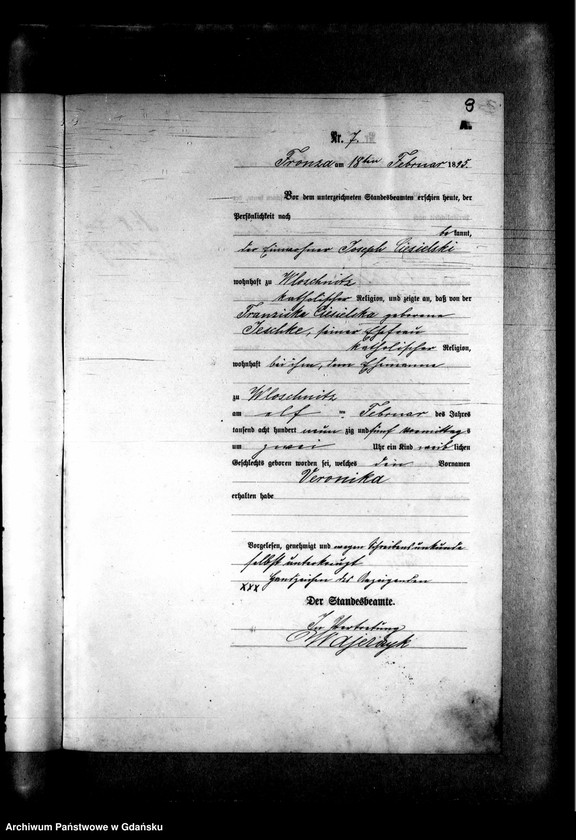 8
A.
Nr. 7.
Fronza am 18ten Februar 1895.
Vor dem unterzeichneten Standesbeamten erschien heute, der
Persönlichkeit nach
be kannt,
der Einwohner Joseph Ciesielski
wohnhaft zu Wloschnitz
katholischer Religion, und zeigte an, daß von der
Franziska Ciesielska geborene
Jeschke, seiner Ehefrau
katholischer Religion,
wohnhaft bei ihm, dem Ehemanne
zu Wloschnitz
am elf ten Februar des Jahres
tausend acht hundert neun zig und fünf Vormittags
um zwei Uhr ein Kind weib lichen
Geschlechts geboren worden sei, welches den Vornamen
Veronika
erhalten habe
Vorgelesen, genehmigt und wegen Schreibensunkunde
selbst unterkreuzt
xxx Handzeichen des Anzeigenden
Der Standesbeamte.
In Vertretung
Archiwum Państwowe w Gdańsku